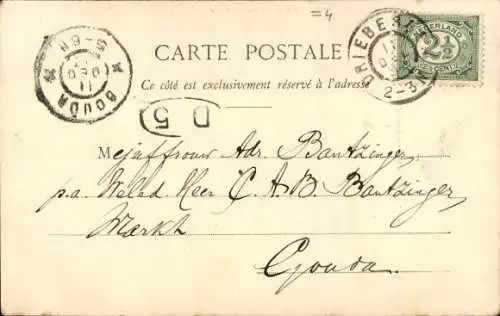 =4
CARTE POSTALE
Ce côté est exclusivement réservé à l'adresse
DRIEBERGEN
2-3N
NEDERLAND
2½
CENT
GOUDA
11 DEC
5-6N
D 5
Mejuffrouw Adr. Bantzinger
p.a. WelEd Heer C. A. B. Bantzinger
Markt
Gouda.